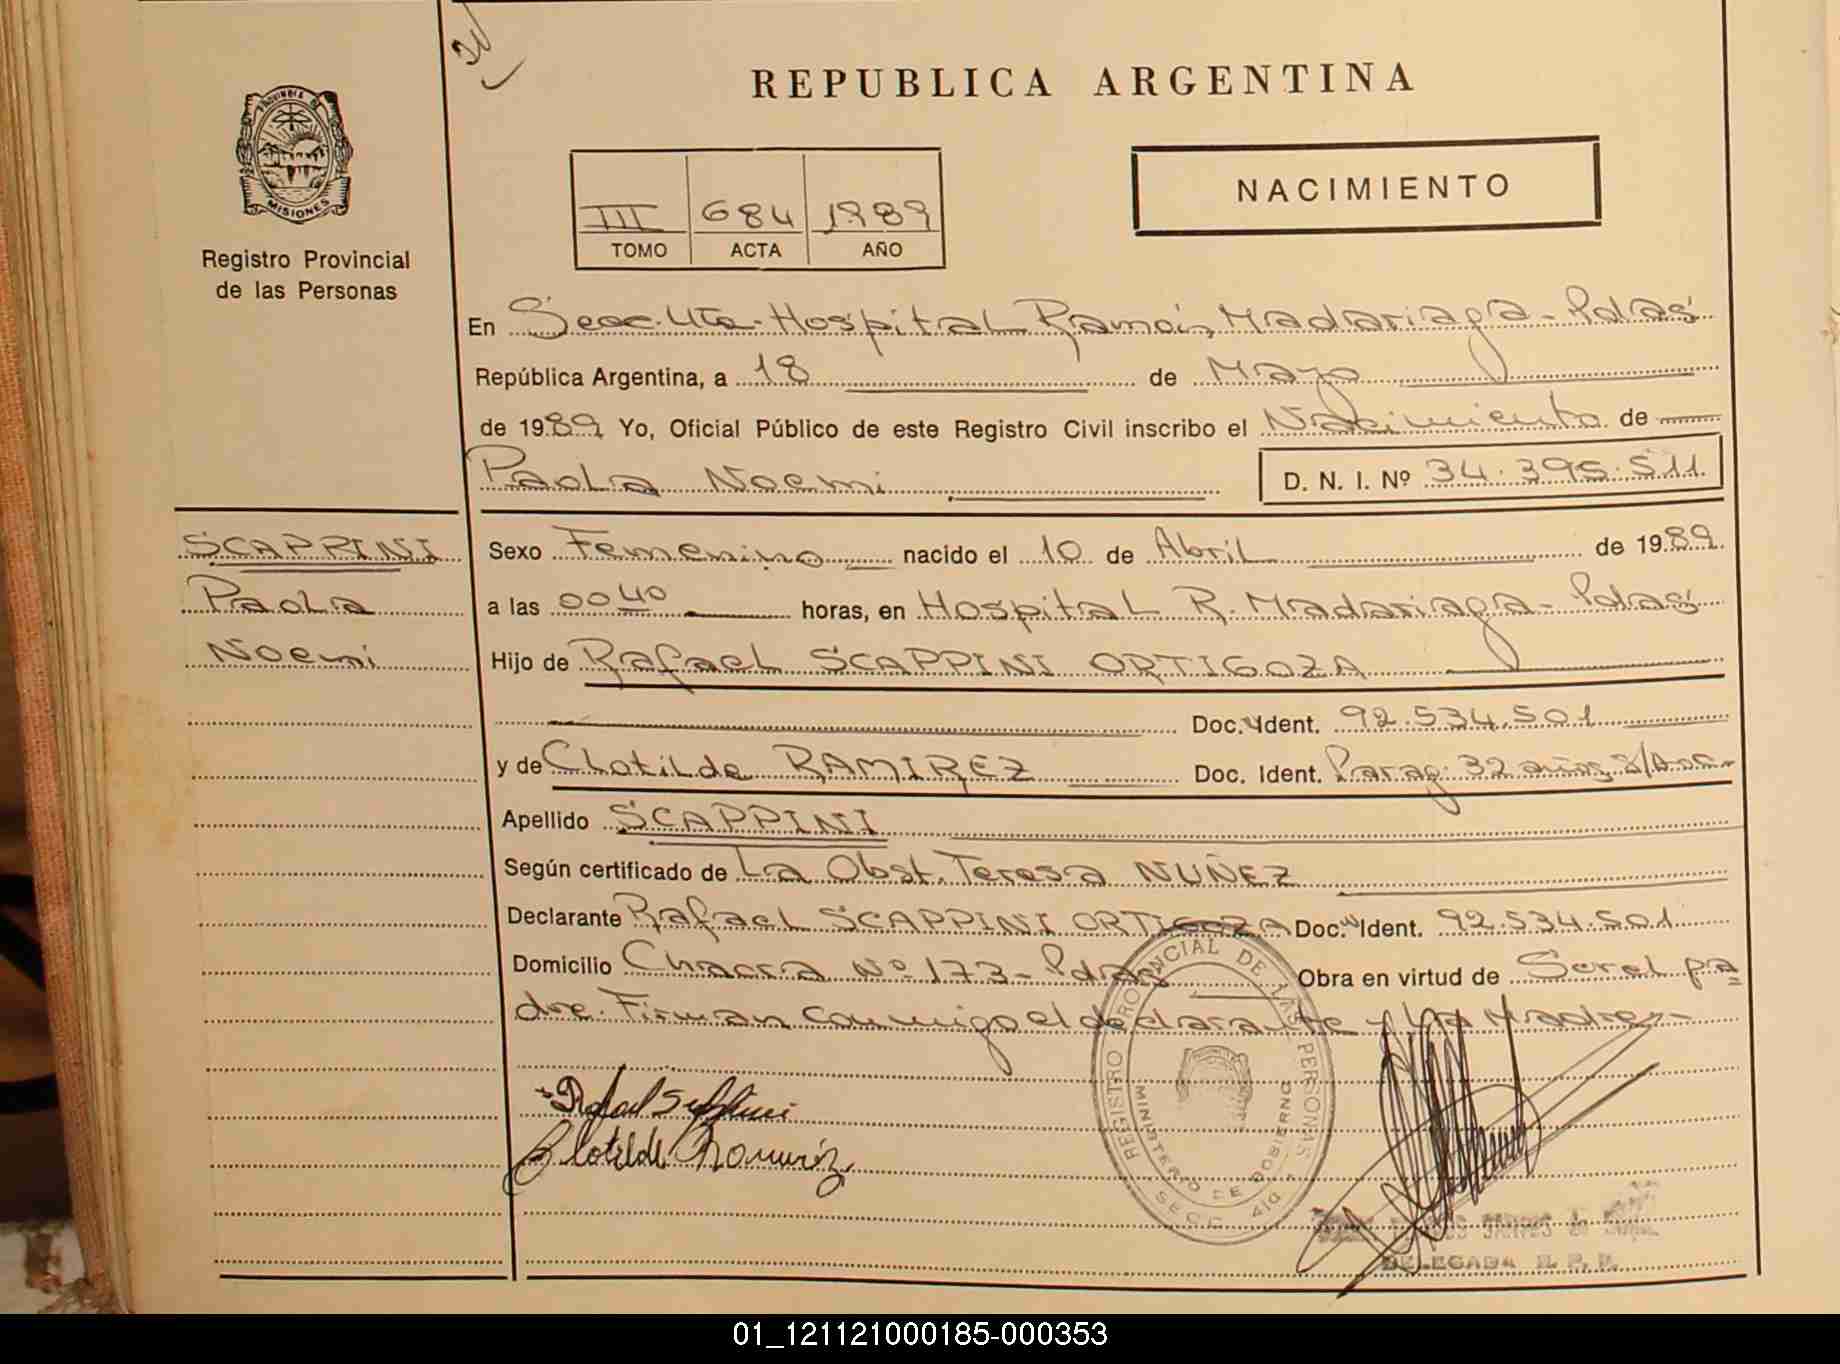 REPUBLICA ARGENTINA
PROVINCIA DE
MISIONES
Registro Provincial
de las Personas
III 684 1989
TOMO ACTA AÑO
NACIMIENTO
En Secc. 4ta. Hospital Ramón Madariaga - Pdas
República Argentina, a 18 de Mayo
de 1989 Yo, Oficial Público de este Registro Civil inscribo el Nacimiento de
Paola Noemi D. N. I. Nº 34.395.511
SCAPPINI
Paola
Noemi
Sexo Femenino nacido el 10 de Abril de 1989
a las 0040 horas, en Hospital R. Madariaga - Pdas
Hijo de Rafael SCAPPINI ORTIGOZA
Doc. Ident. 92.534.501
y de Clotilde RAMIREZ Doc. Ident. Parag. 32 años S/Doc.-
Apellido SCAPPINI
Según certificado de La Obst. Teresa NUÑEZ
Declarante Rafael SCAPPINI ORTIGOZA Doc. Ident. 92.534.501
Domicilio Chacra Nº 173 - Pdas Obra en virtud de Ser el pa
dre. Firman conmigo el declarante y la Madre -
Rafael Scappini
Clotilde Ramirez
REGISTRO PROVINCIAL DE LAS PERSONAS
MINISTERIO DE GOBIERNO
SECC. 4ta
DELEGADA R. P. P.
01_121121000185-000353